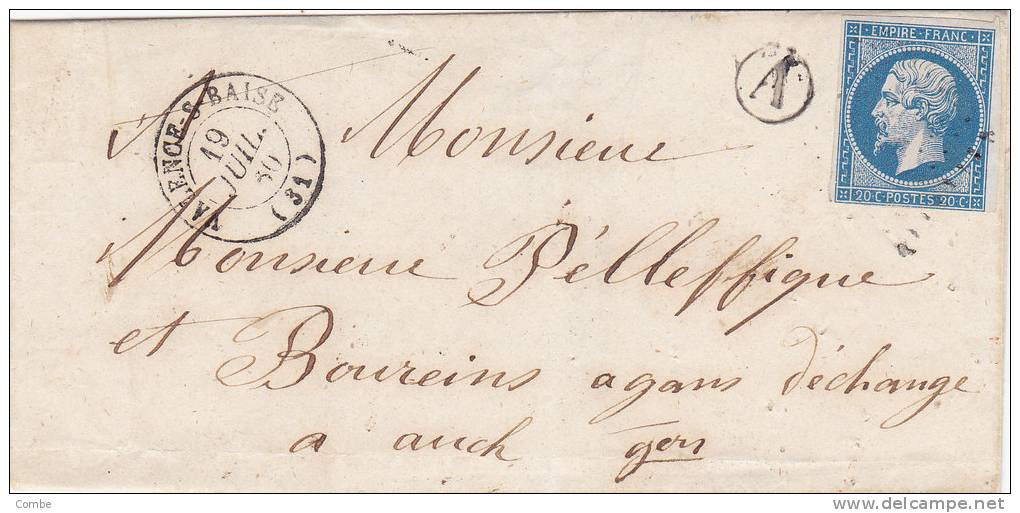 EMPIRE · FRANC
A
VALENCE-S-BAISE
19
JUIL.
60
(31)
Monsieur
20·C·POSTES·20·C
Monsieur Pèlleffigue
et Boureins agans d'échange
a auch gers
Combe
www.delcampe.net